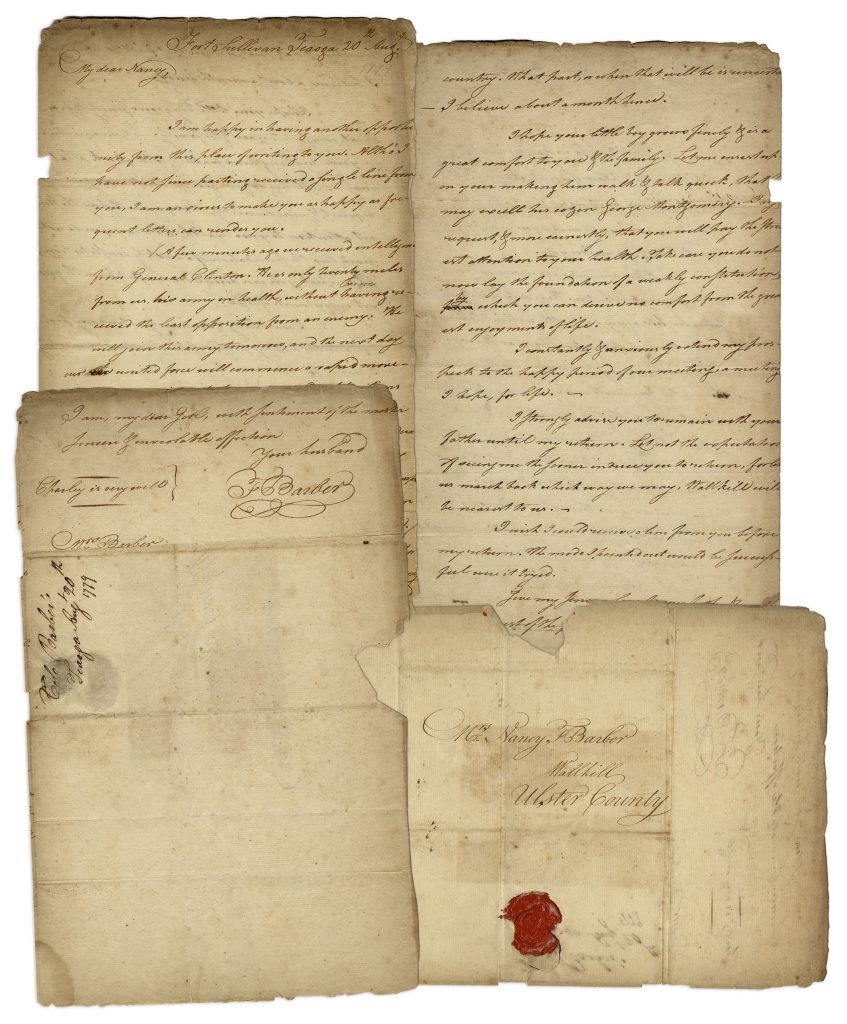 Fort Sullivan Teaoga 20th Augt
My dear Nancy,
I am happy in having another opportu
nity from this place of writing to you. Altho' I
have not since parting received a single line from
you, I am anxious to make you as happy as fre-
quent letters can render you.
A few minutes ago we received intelligen
from General Clinton. He is only twenty miles
from us, his army in health, without having re-
ceived the least opposition from an enemy. He
will join this army tomorrow, and the next day
our united force will commence a rapid move-
country. What part, or when that will be is uncerta
I believe about a month hence.
I hope your little boy grows finely & is a
great comfort to you & the family. Let me insist up-
on your making him walk & talk quick, that
may excell his cozen George Montgomery. I
request, & more earnestly, that you will pay the stric
est attention to your health. Take care you do not
now lay the foundation of a weakly constitution,
by which you can derive no comfort from the great
est enjoyments of life.
I constantly & anxiously extend my pros-
pects to the happy period of our meeting, a meeting
I hope, for life. —
I strongly advise you to remain with your
father until my return. Let not the expectation
of seeing me the sooner induce you to return, for let
us march back which way we may, Wallkill will
be nearest to us. —
I wish I could receive a line from you before
my return. The mode I pointed out would be success-
ful were it tryed.
Give my
est of the
I am, my dear Girl, with sentiment of the most
sincere & inviolable affection
Your husband
Charley is very well } F Barber
Mrs Barber
Colo Barber's
Teaoga Augt 20th
1779
Mrs Nancy F Barber
Wallkill
Ulster County